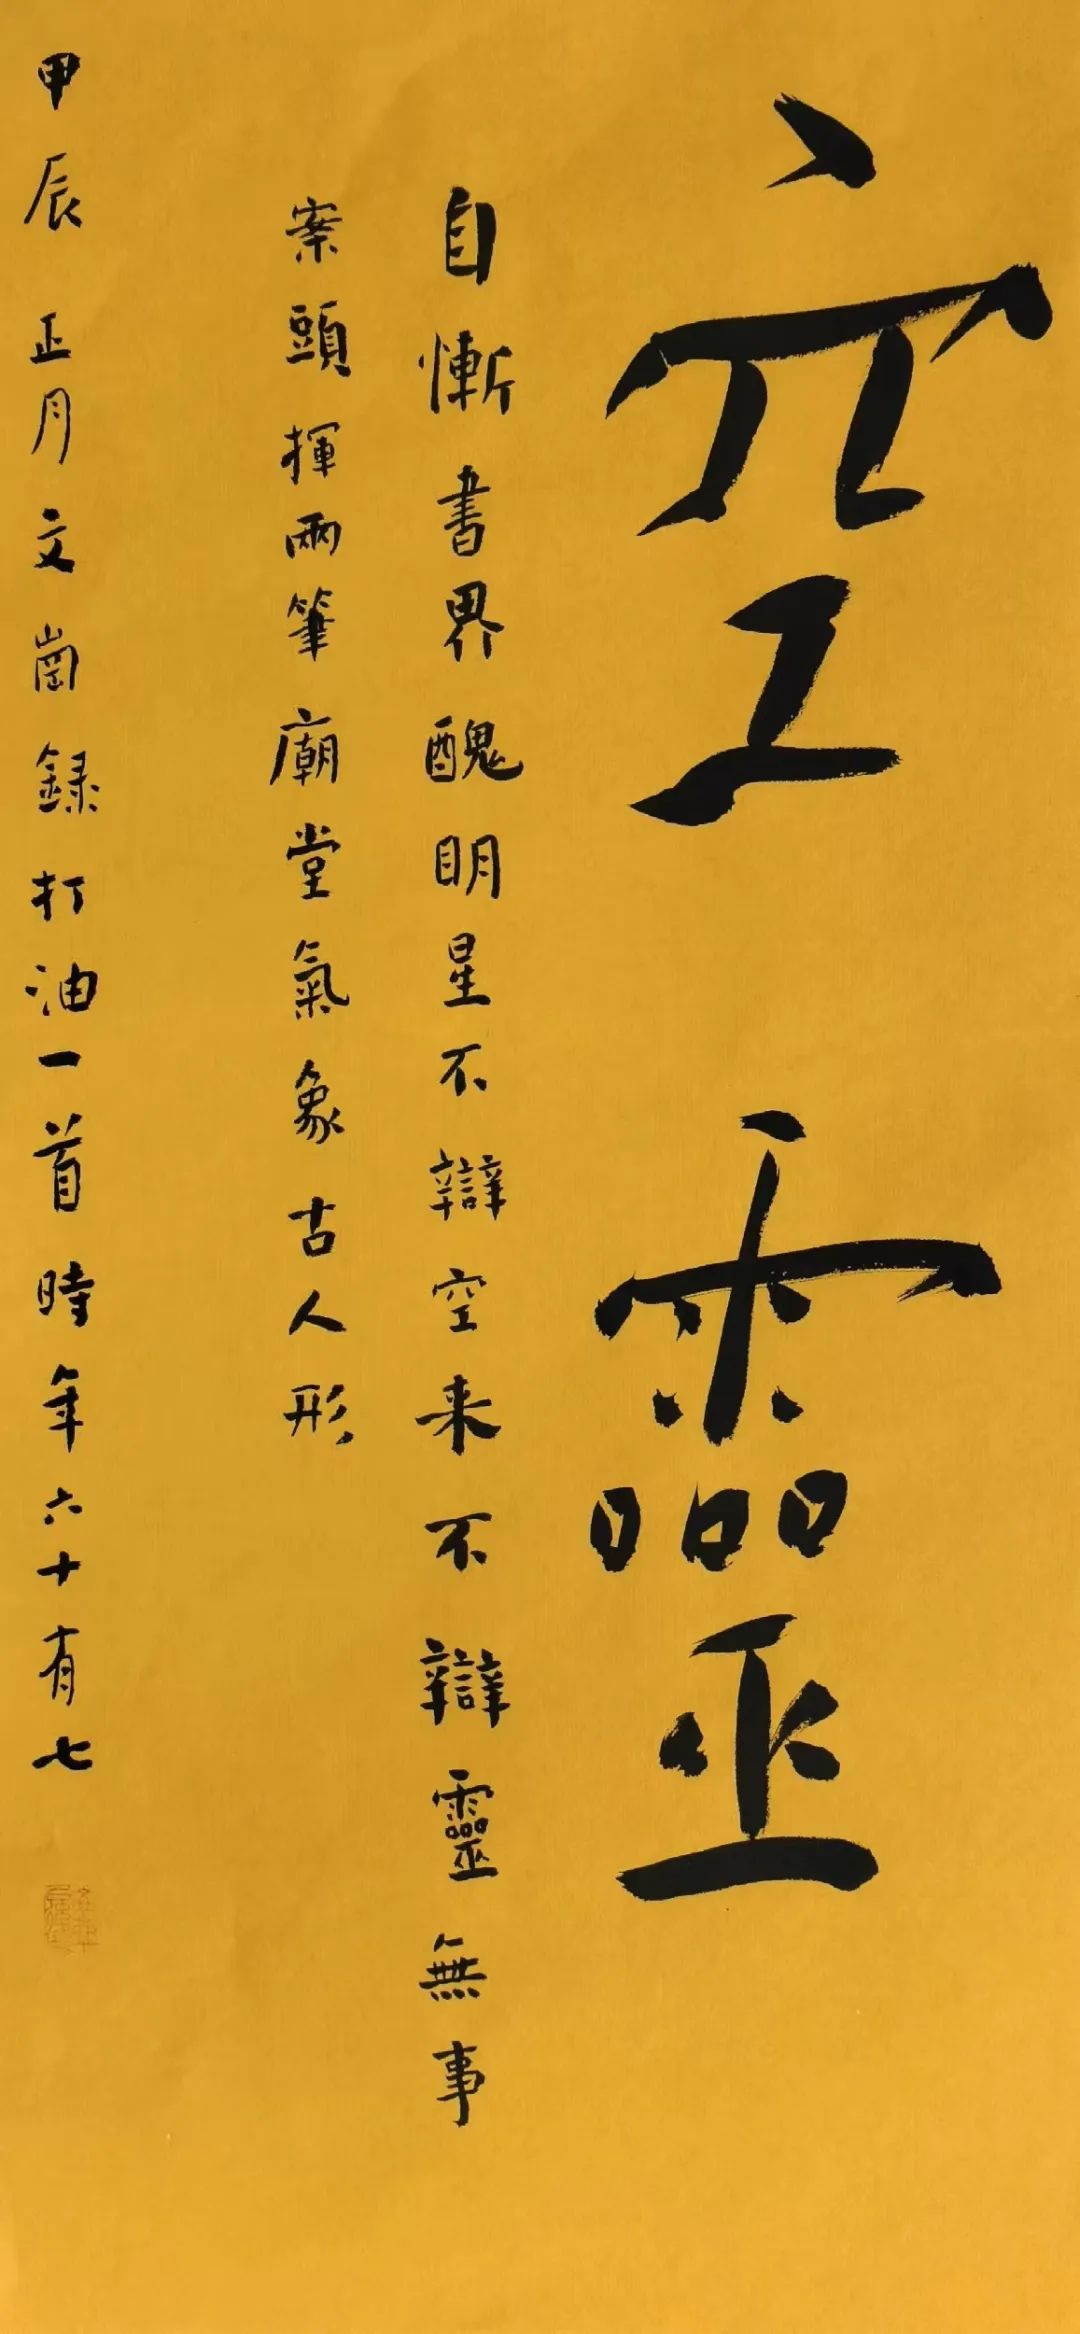 空靈
自慚書界醜明星不辯空来不辯靈無事
案頭揮兩筆廟堂氣象古人形
甲辰正月文崗録打油一首時年六十有七